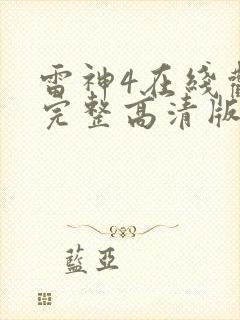 雷神4在线
完整高清版
藍亞